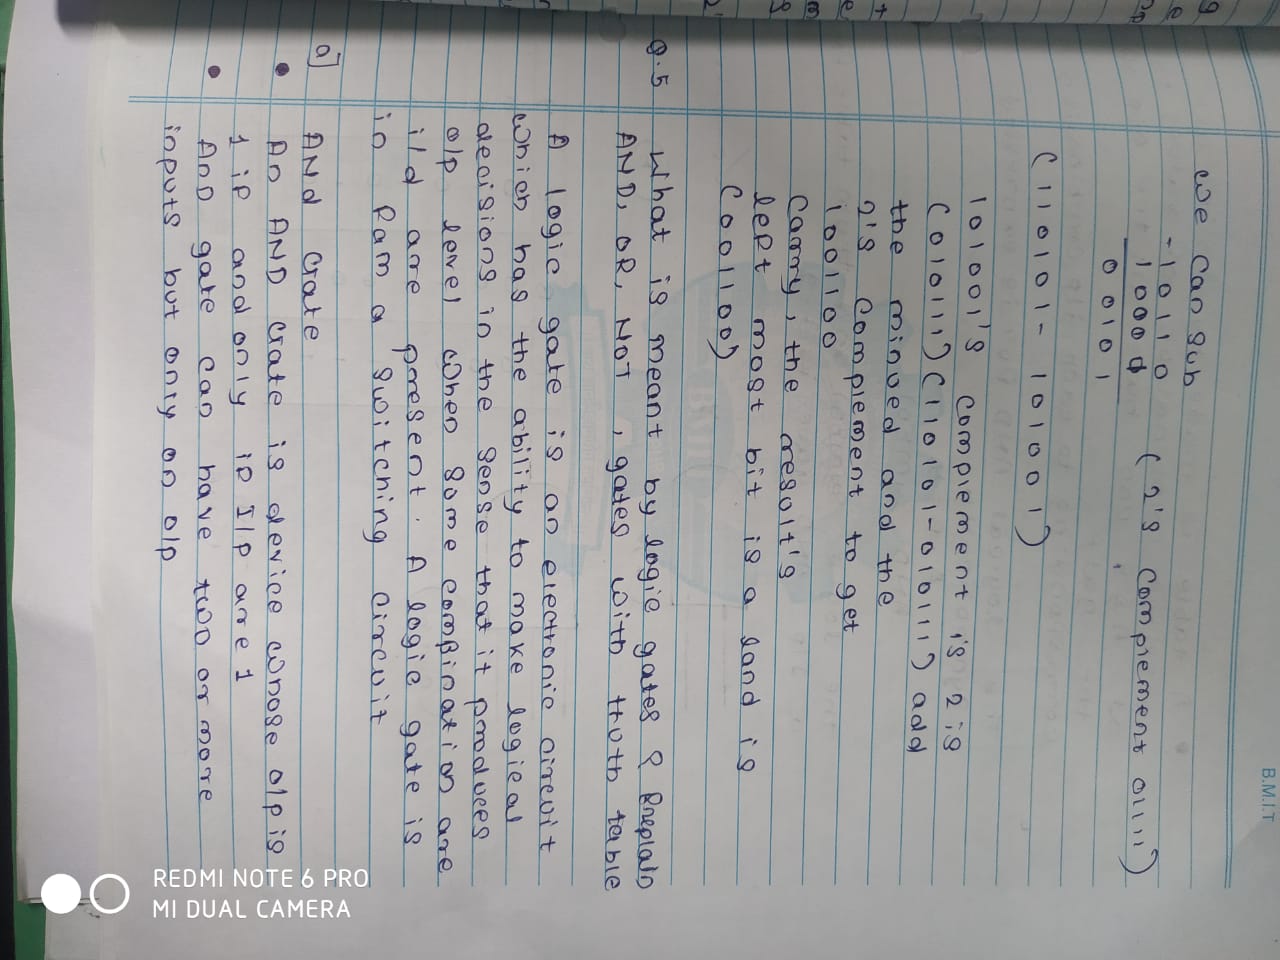 we can sub
-10110 (2's complement 01111)
1000d
00101
(110101-101001)
101001's complement is 2is
(010111)(110101-010111) add
the minued and the
2's complement to get
1001100
Carry, the result's
left most bit is a land is
(001100)
Q.5 What is meant by logic gates &
AND, OR, NOT, gates with thuth table
A logic gate is an electronic circuit
which has the ability to make logical
decisions in the sense that it produces
o/p level when some combination are
i/d are present. A logic gate is
in Ram a switching circuit
a] AND Grate
• An AND Grate is device whose o/p is
1 if and only if I/p are 1
• AnD gate can have two or more
inputs but only on o/p
B.M.I.T
REDMI NOTE 6 PRO
MI DUAL CAMERA